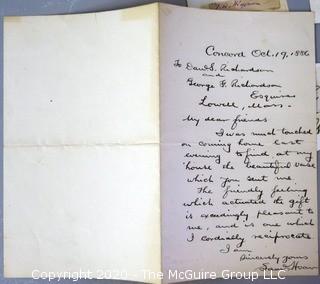 Concord Oct. 19, 1886
To Danl S. Richardson
and
George F. Richardson
Esquires
Lowell, Mass.
My dear friends
I was much touched
on coming home last
evening to find at my
house the beautiful vase
which you sent me.
The friendly feeling
which actuated the gift
is exceedingly pleasant to
me, and is one which
I cordially reciprocate
I am
Sincerely yours
Hoar
Copyright 2020 - The McGuire Group LLC